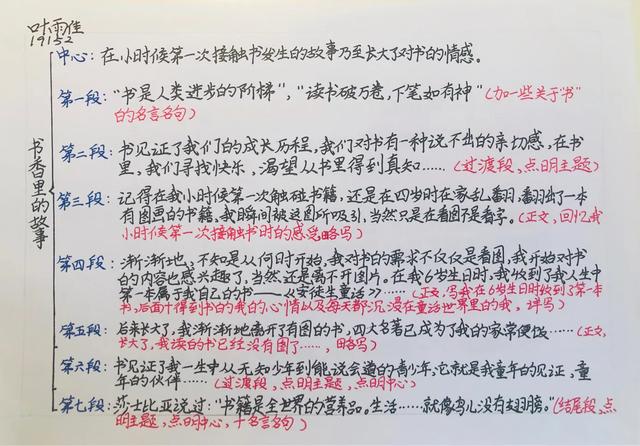 叶雨佳
19152
书香里的故事
中心：在小时候第一次接触书发生的故事乃至长大了对书的情感。
第一段：“书是人类进步的阶梯”，“读书破万卷，下笔如有神”（加一些关于“书”
的名言名句）
第二段：书见证了我们的成长历程，我们对书有一种说不出的亲切感，在书
里，我们寻找快乐，渴望从书里得到真知……（过渡段，点明主题）
第三段：记得在我小时候第一次触碰书籍，还是在四岁时在家乱翻，翻出了一本
有图画的书籍，我瞬间被这图所吸引，当然只是在看图不是看字。（正文，回忆我
小时候第一次接触书时的感受略写）
第四段：渐渐地，不知是从何时开始，我对书的需求不仅仅是看图，我开始对书
的内容也感兴趣了，当然还是离不开图片。在我6岁生日时，我收到了我人生中
第一本属于我自己的书——《安徒生童话》……（正文，写我在6岁生日时收到了第一本
书，后面个得到书的我的心情以及每天都沉浸在童话世界里的我，详写）
第五段：后来长大了，我渐渐地离开了有图的书，四大名著已成为了我的家常便饭……（正文，
长大了，我读的书已经没有图了……，略写）
第六段：书见证了我一生中从无知少年到能说会道的青少年，它就是我童年的见证，童
年的伙伴……（过渡段，点明主题，点明中心）
第七段：莎士比亚说过：“书籍是全世界的营养品。生活……就像鸟儿没有翅膀。”（结尾段，点
明主题，点明中心，十名言名句）